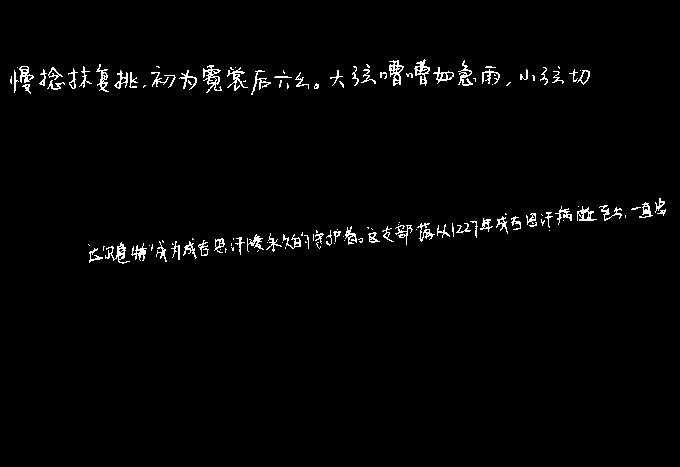 慢捻抹复挑,初为霓裳后六幺。大弦嘈嘈如急雨,小弦切
达尔扈特”成为成吉思汗陵永久的守护者。这支部落从1227年成吉思汗病逝至今,一直忠